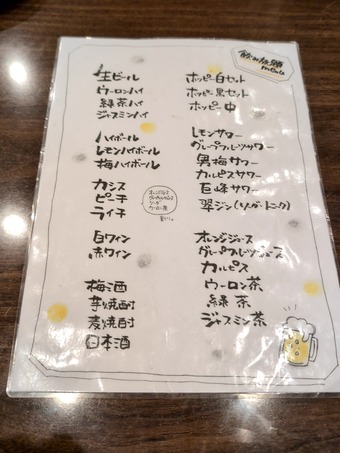 飲み放題
menu
生ビール
ウーロンハイ
緑茶ハイ
ジャスミンハイ
ハイボール
レモンハイボール
梅ハイボール
カシス
ピーチ
ライチ
オレンジジュース
グレープフルーツジュース
ソーダ
ウーロン茶
割り
白ワイン
赤ワイン
梅酒
芋焼酎
麦焼酎
日本酒
ホッピー白セット
ホッピー黒セット
ホッピー中
レモンサワー
グレープフルーツサワー
男梅サワー
カルピスサワー
巨峰サワー
翠ジン(ソーダ・トニック)
オレンジジュース
グレープフルーツジュース
カルピス
ウーロン茶
緑茶
ジャスミン茶